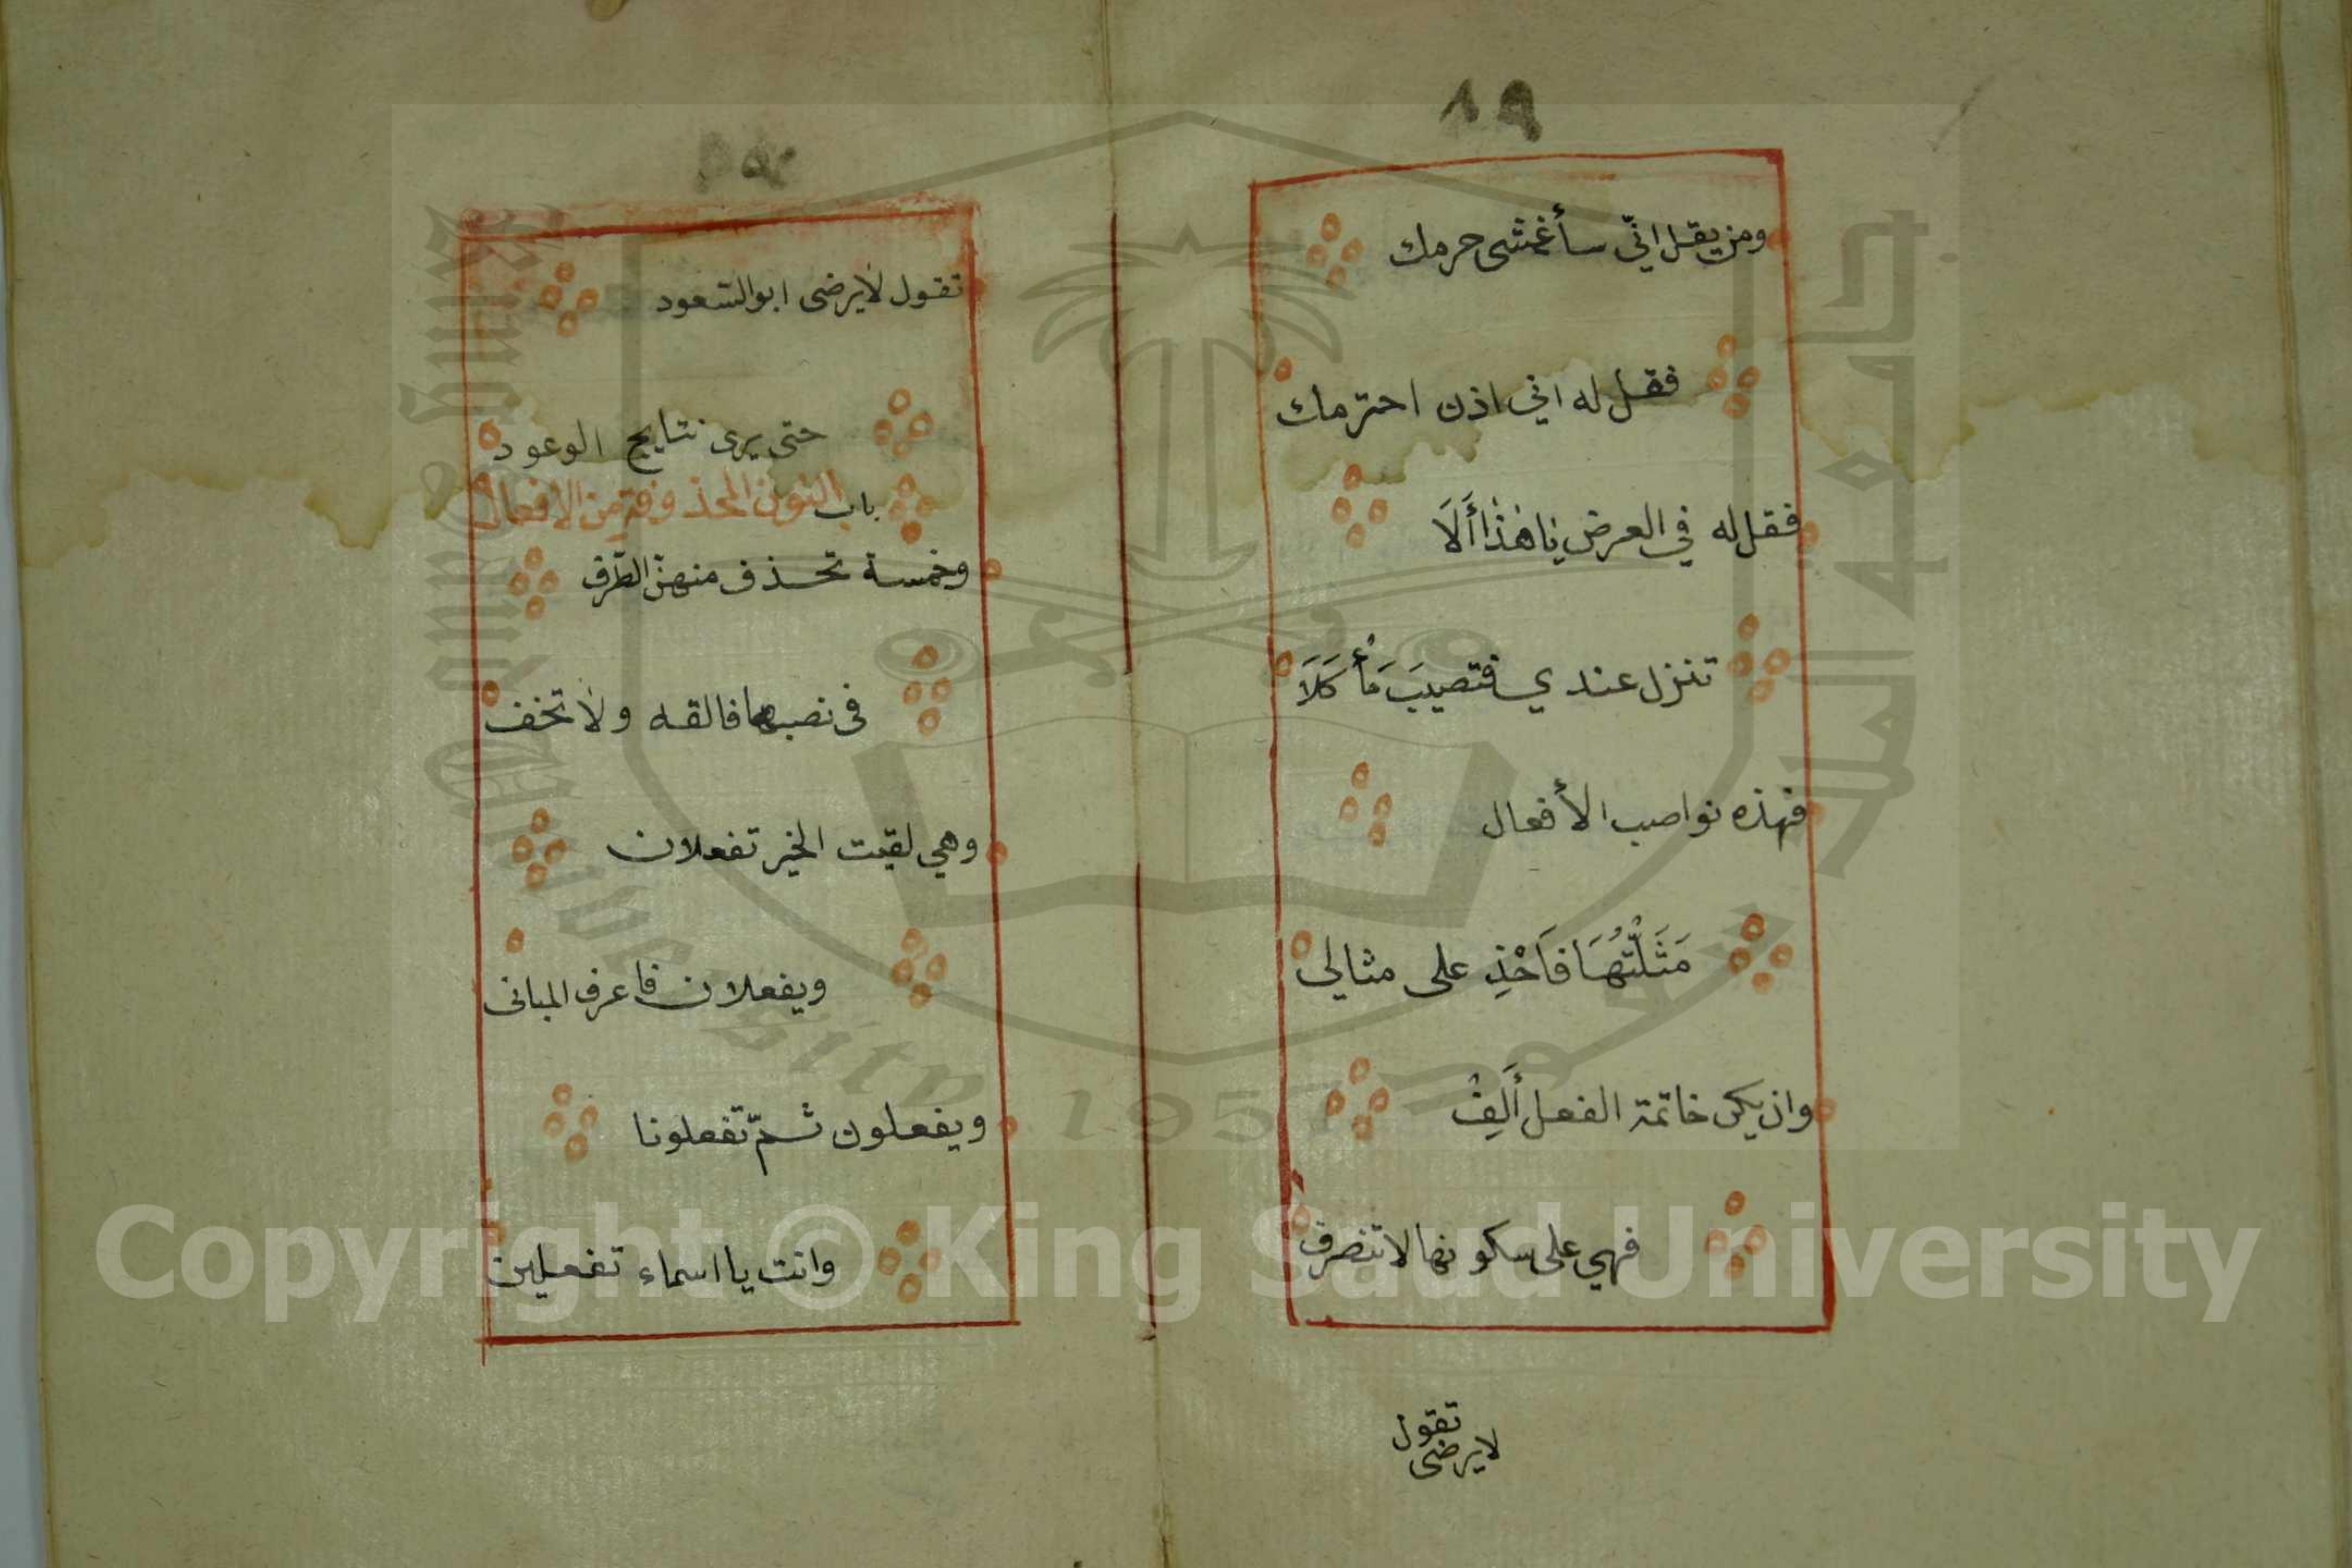 ١٩
ومن يقل انّي سأغشى حرمك
فقل له اني اذن احترمك
فقل له في العرض يا هذا أَلَا
تنزل عندي فتصيبَ مَأْكَلَا
فهذه نواصب الأفعال
مَثَّلْتُهَا فَاحْذِ على مثالي
وان يكن خاتمة الفعل أَلِفْ
فهي على سكونها لا تنصرف
تقول
لا يرضى
تقول لا يرضى ابو السّعود
حتى يرى نتايج الوعود
باب النون المحذوفة من الافعال
وخمسة تحذف منهنّ الطّرف
في نصبها فالقه ولا تخف
وهي لقيت الخير تفعلان
ويفعلان فاعرف المباني
ويفعلون ثمّ تفعلونا
وانت يا اسماء تفعلين
جامعة الملك سعود
King Saud University
1957
Copyright © King Saud University